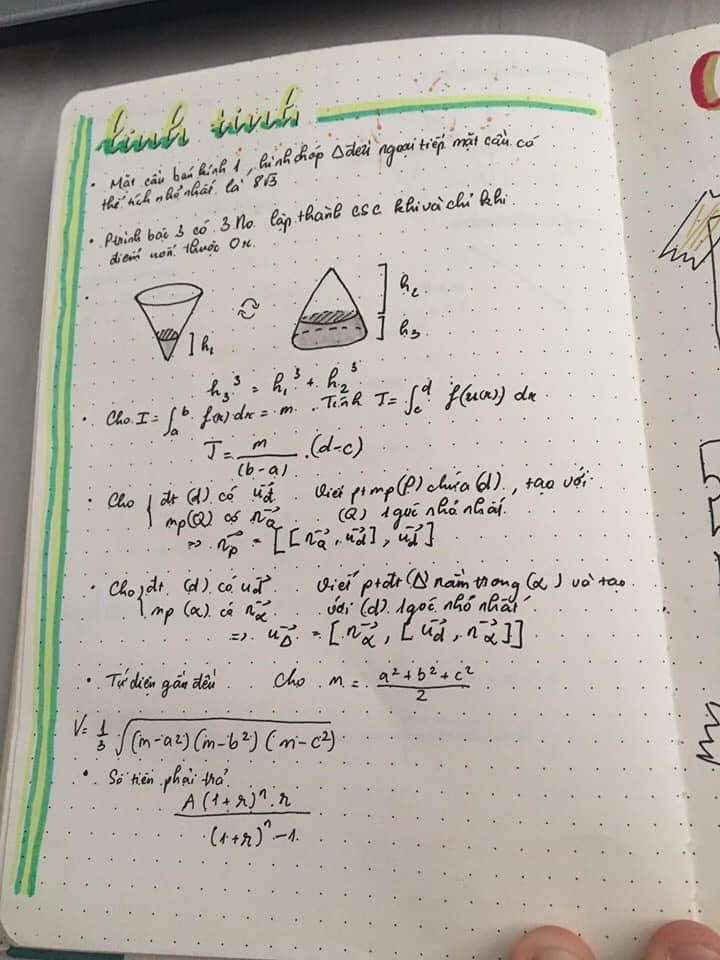 linh tinh
• Mặt cầu bán kính 1, hình chóp Δ đều ngoại tiếp mặt cầu có
thể tích nhỏ nhất là 8√3
• Ptrình bậc 3 có 3 No lập thành csc khi và chỉ khi
điểm uốn thuộc Ox.
h₂
h₁
h₃
h₃³ = h₁³ + h₂³
• Cho I = ∫ₐᵇ f(x) dx = m. Tính J = ∫_c^d f(u(x)) dx
J = m/(b-a) . (d-c)
• Cho { đt (d) có u_d→ Viết pt mp(P) chứa (d), tạo với
mp(Q) có n_Q→ (Q) 1 góc nhỏ nhất.
⇒ n_p→ = [[n_Q→, u_d→], u_d→]
• Cho { đt (d) có u_d→ Viết pt đt (Δ) nằm trong (α) và tạo
mp (α) có n_α→ với (d) 1 góc nhỏ nhất
⇒ u_Δ→ = [n_α→, [u_d→, n_α→]]
• Tứ diện gần đều Cho m = (a²+b²+c²)/2
V = 1/3 √((m-a²)(m-b²)(m-c²))
• Số tiền phải trả
A(1+r)ⁿ.r
(1+r)ⁿ-1.